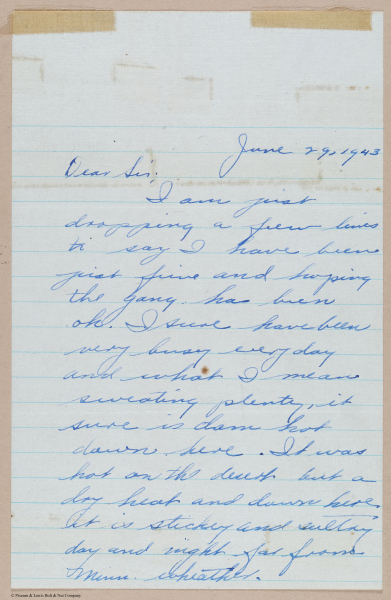 June 29, 1943
Dear Sir:
I am just
dropping a few lines
to say I have been
just fine and hoping
the gang has been
ok. I sure have been
very busy everyday
and what I mean
sweating plenty, it
sure is dam hot
down here. It was
hot on the desert but a
dry heat and down here
it is stickey and sultry
day and night far from
Minn. wheather.